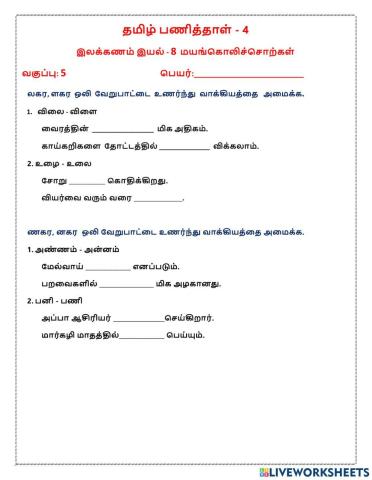 தமிழ் பணித்தாள் - 4
இலக்கணம் இயல் - 8 மயங்கொலிச்சொற்கள்
வகுப்பு: 5 பெயர்:_________________________
லகர, ளகர ஒலி வேறுபாட்டை உணர்ந்து வாக்கியத்தை அமைக்க.
1. விலை - விளை
வைரத்தின் ______________ மிக அதிகம்.
காய்கறிகளை தோட்டத்தில் ____________ விக்கலாம்.
2. உழை - உலை
சோறு _________ கொதிக்கிறது.
வியர்வை வரும் வரை ____________.
ணகர, னகர ஒலி வேறுபாட்டை உணர்ந்து வாக்கியத்தை அமைக்க.
1. அண்ணம் - அன்னம்
மேல்வாய் ___________ எனப்படும்.
பறவைகளில் _____________ மிக அழகானது.
2. பனி - பணி
அப்பா ஆசிரியர் ____________செய்கிறார்.
மார்கழி மாதத்தில்___________ பெய்யும்.
LIVEWORKSHEETS